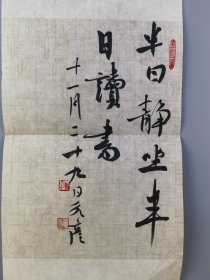 半日静坐半
日讀書
十一月二十九日